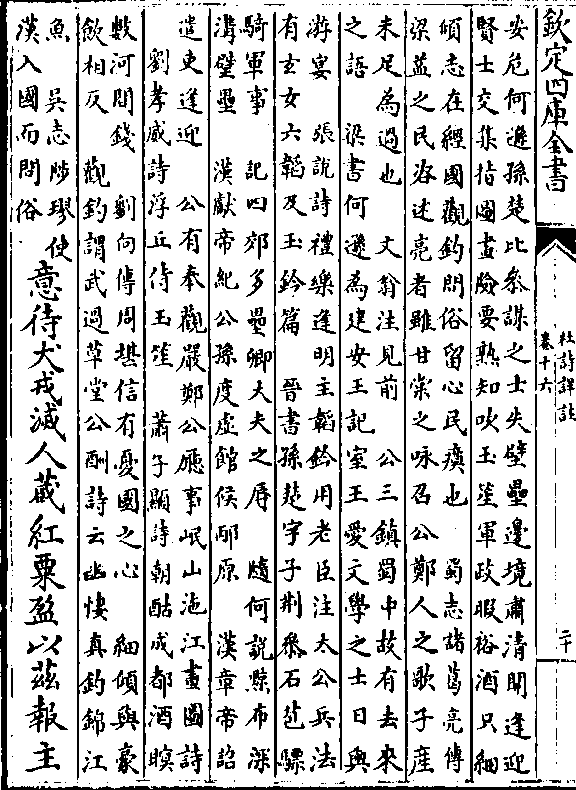 欽定四庫全書
杜詩詳註
卷十六
二十
安危何遜孫楚比參謀之士失壁壘邊境肅清閒逢迎
賢士交集指圖畫險要熟知吹玉笙軍政暇裕酒只細
傾志在經國觀釣問俗留心民瘼也 蜀志諸葛亮傳
梁益之民咨述亮者雖甘棠之咏召公鄭人之歌子產
未足為過也 文翁注見前 公三鎮蜀中故有去來
之語 梁書何遜為建安王記室王愛文學之士日與
游宴 張說詩禮樂逢明主韜鈐用老臣注太公兵法
有玄女六韜及玉鈐篇 晉書孫楚字子荆參石苞驃
騎軍事 記四郊多壘卿大夫之辱 隨何說黥布深
溝壁壘 漢獻帝紀公孫度虛館候邴原 漢章帝詔
遣吏逢迎 公有奉觀嚴鄭公廳事岷山沲江畫圖詩
劉孝威詩浮丘侍玉笙 蕭子顯詩朝酤成都酒暝
數河間錢 劉向傳周堪信有憂國之心 細傾與豪
飲相反 觀釣謂武過草堂公酬詩云幽棲真釣錦江
魚 吳志陟璆使
漢入國而問俗
意待犬戎滅人藏紅粟盈以茲報主